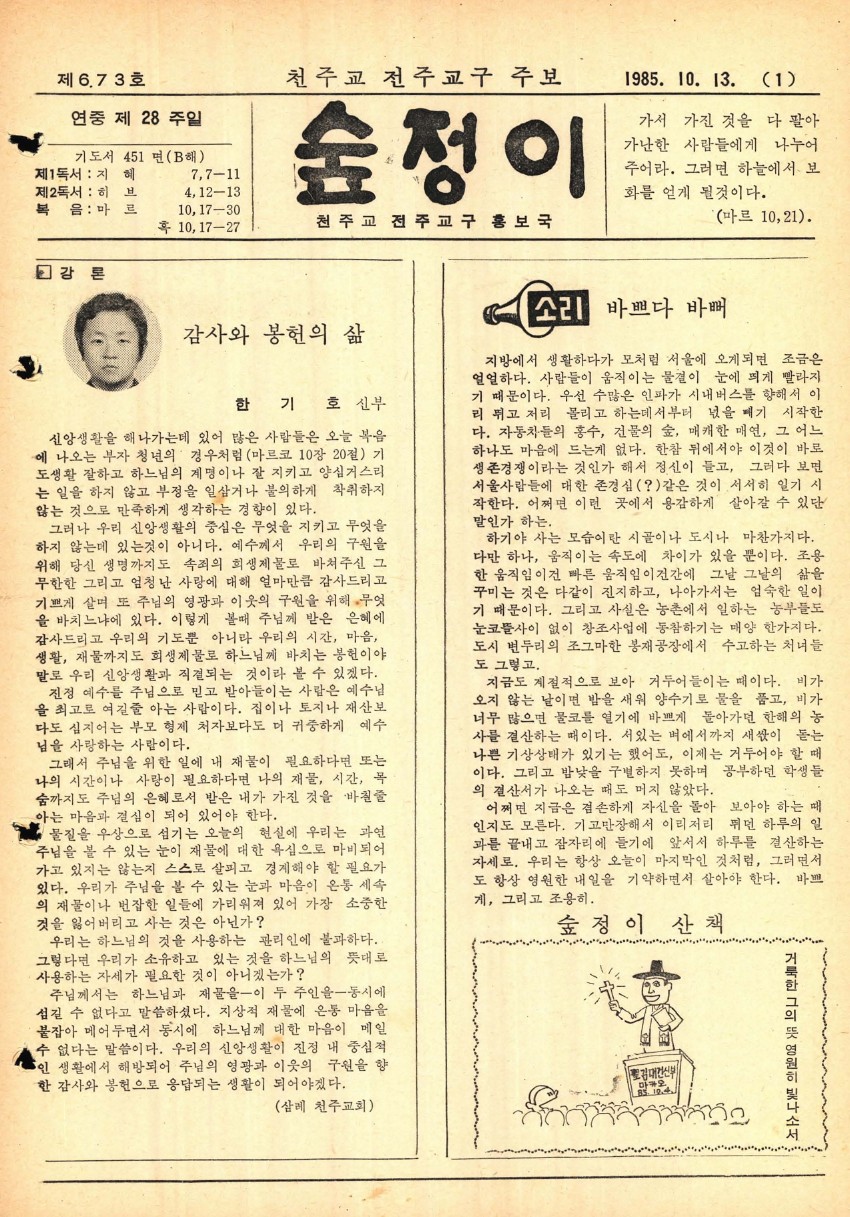 제673호
천주교 전주교구 주보
1985. 10. 13. (1)
연중 제 28 주일
기도서 451 면(B해)
제1독서 : 지 혜 7,7—11
제2독서 : 히 브 4,12—13
복 음 : 마 르 10,17—30
혹 10,17—27
숲정이
천주교 전주교구 홍보국
가서 가진 것을 다 팔아
가난한 사람들에게 나누어
주어라. 그러면 하늘에서 보
화를 얻게 될것이다.
(마르 10,21).
강 론
감사와 봉헌의 삶
한 기 호 신부
신앙생활을 해나가는데 있어 많은 사람들은 오늘 복음
에 나오는 부자 청년의 경우처럼(마르코 10장 20절) 기
도생활 잘하고 하느님의 계명이나 잘 지키고 양심거스리
는 일을 하지 않고 부정을 일삼거나 불의하게 착취하지
않는 것으로 만족하게 생각하는 경향이 있다.
그러나 우리 신앙생활의 중심은 무엇을 지키고 무엇을
하지 않는데 있는것이 아니다. 예수께서 우리의 구원을
위해 당신 생명까지도 속죄의 희생제물로 바쳐주신 그
무한한 그리고 엄청난 사랑에 대해 얼마만큼 감사드리고
기쁘게 살며 또 주님의 영광과 이웃의 구원을 위해 무엇
을 바치느냐에 있다. 이렇게 볼때 주님께 받은 은혜에
감사드리고 우리의 기도뿐 아니라 우리의 시간, 마음,
생활, 재물까지도 희생제물로 하느님께 바치는 봉헌이야
말로 우리 신앙생활과 직결되는 것이라 볼 수 있겠다.
진정 예수를 주님으로 믿고 받아들이는 사람은 예수님
을 최고로 여길줄 아는 사람이다. 집이나 토지나 재산보
다도 심지어는 부모 형제 처자보다도 더 귀중하게 예수
님을 사랑하는 사람이다.
그래서 주님을 위한 일에 내 재물이 필요하다면 또는
나의 시간이나 사랑이 필요하다면 나의 재물, 시간, 목
숨까지도 주님의 은혜로서 받은 내가 가진 것을 바칠줄
아는 마음과 결심이 되어 있어야 한다.
물질을 우상으로 섬기는 오늘의 현실에 우리는 과연
주님을 볼 수 있는 눈이 재물에 대한 욕심으로 마비되어
가고 있지는 않는지 스스로 살피고 경계해야 할 필요가
있다. 우리가 주님을 볼 수 있는 눈과 마음이 온통 세속
의 재물이나 번잡한 일들에 가리워져 있어 가장 소중한
것을 잃어버리고 사는 것은 아닌가?
우리는 하느님의 것을 사용하는 관리인에 불과하다.
그렇다면 우리가 소유하고 있는 것을 하느님의 뜻대로
사용하는 자세가 필요한 것이 아니겠는가?
주님께서는 하느님과 재물을—이 두 주인을—동시에
섬길 수 없다고 말씀하셨다. 지상적 재물에 온통 마음을
붙잡아 메어두면서 동시에 하느님께 대한 마음이 메일
수 없다는 말씀이다. 우리의 신앙생활이 진정 내 중심적
인 생활에서 해방되어 주님의 영광과 이웃의 구원을 향
한 감사와 봉헌으로 응답되는 생활이 되어야겠다.
(삼례 천주교회)
소리
바쁘다 바뻐
지방에서 생활하다가 모처럼 서울에 오게되면 조금은
얼얼하다. 사람들이 움직이는 물결이 눈에 띄게 빨라지
기 때문이다. 우선 수많은 인파가 시내버스를 향해서 이
리 뛰고 저리 몰리고 하는데서부터 넋을 빼기 시작한
다. 자동차들의 홍수, 건물의 숲, 매캐한 매연, 그 어느
하나도 마음에 드는게 없다. 한참 뒤에서야 이것이 바로
생존경쟁이라는 것인가 해서 정신이 들고, 그러다 보면
서울사람들에 대한 존경심(?)같은 것이 서서히 일기 시
작한다. 어쩌면 이런 곳에서 용감하게 살아갈 수 있단
말인가 하는.
하기야 사는 모습이란 시골이나 도시나 마찬가지다.
다만 하나, 움직이는 속도에 차이가 있을 뿐이다. 조용
한 움직임이건 빠른 움직임이건간에 그날 그날의 삶을
꾸미는 것은 다같이 진지하고, 나아가서는 엄숙한 일이
기 때문이다. 그리고 사실은 농촌에서 일하는 농부들도
눈코뜰사이 없이 창조사업에 동참하기는 매양 한가지다.
도시 변두리의 조그마한 봉재공장에서 수고하는 처녀들
도 그렇고.
지금도 계절적으로 보아 거두어들이는 때이다. 비가
오지 않는 날이면 밤을 새워 양수기로 물을 품고, 비가
너무 많으면 물코를 열기에 바쁘게 돌아가던 한해의 농
사를 결산하는 때이다. 서있는 벼에서까지 새싻이 돋는
나쁜 기상상태가 있기는 했어도, 이제는 거두어야 할 때
이다. 그리고 밤낮을 구별하지 못하며 공부하던 학생들
의 결산서가 나오는 때도 머지 않았다.
어쩌면 지금은 겸손하게 자신을 돌아 보아야 하는 때
인지도 모른다. 기고만장해서 이리저리 뛰던 하루의 일
과를 끝내고 잠자리에 들기에 앞서서 하루를 결산하는
자세로. 우리는 항상 오늘이 마지막인 것처럼, 그러면서
도 항상 영원한 내일을 기약하면서 살아야 한다. 바쁘
게, 그리고 조용히.
숲정이 산책
거룩한 그의 뜻 영원히 빛나소서
聖김대건신부
마카오
85.10.4.